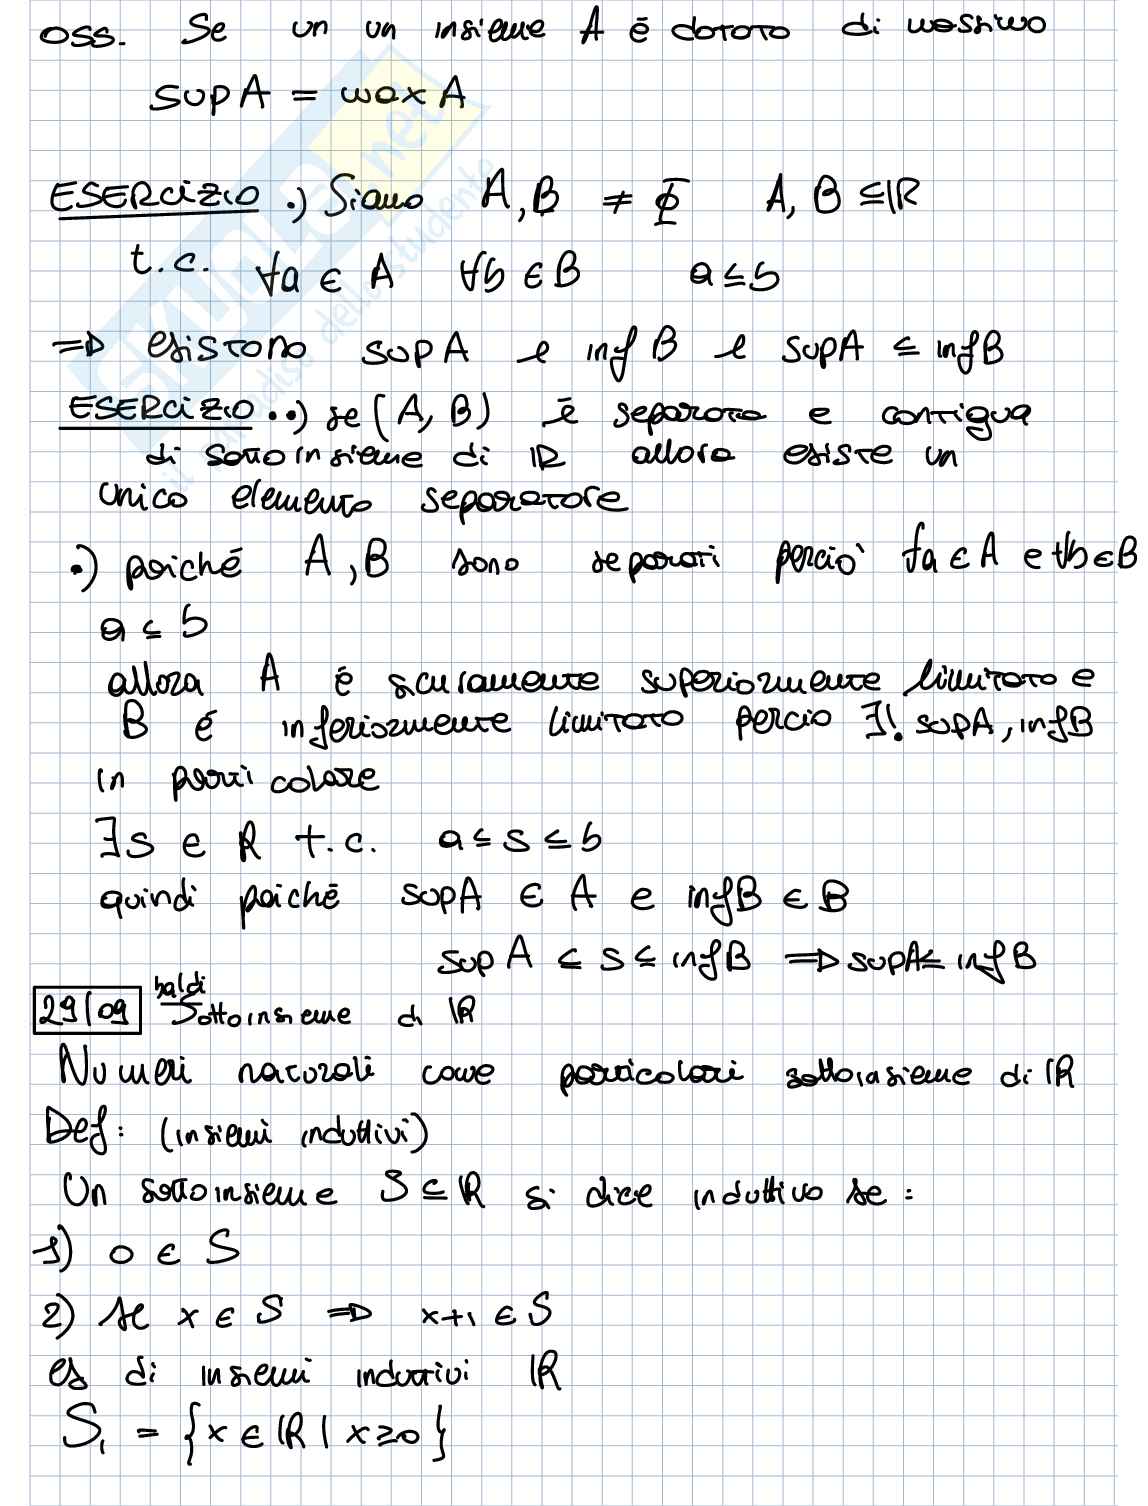 oss. Se un un insieme A è dotato di massimo
sup A = max A
ESERCIZIO .) Siano A, B ≠ Φ A, B ⊆ ℝ
t.c. ∀a ∈ A ∀b ∈ B a ≤ b
⇒ esistono sup A e inf B e sup A ≤ inf B
ESERCIZIO ..) se (A, B) è separata e contigua
di sottoinsieme di ℝ allora esiste un
unico elemento separatore
.) poiché A, B sono separati perciò ∀a ∈ A e ∀b ∈ B
a ≤ b
allora A è sicuramente superiormente limitato e
B è inferiormente limitato percio ∃! sup A, inf B
in particolare
∃ s e R t.c. a ≤ s ≤ b
quindi poiché sup A ∈ A e inf B ∈ B
sup A ≤ s ≤ inf B ⇒ sup A ≤ inf B
29/09 baldi Sottoinsieme di ℝ
Numeri naturali come particolari sottoinsieme di ℝ
Def: (insiemi induttivi)
Un sottoinsieme S ⊆ ℝ si dice induttivo se:
1) 0 ∈ S
2) se x ∈ S ⇒ x+1 ∈ S
es di insiemi induttivi ℝ
S₁ = {x ∈ ℝ | x ≥ 0}
SKUOLA.net
il paradiso dello studente